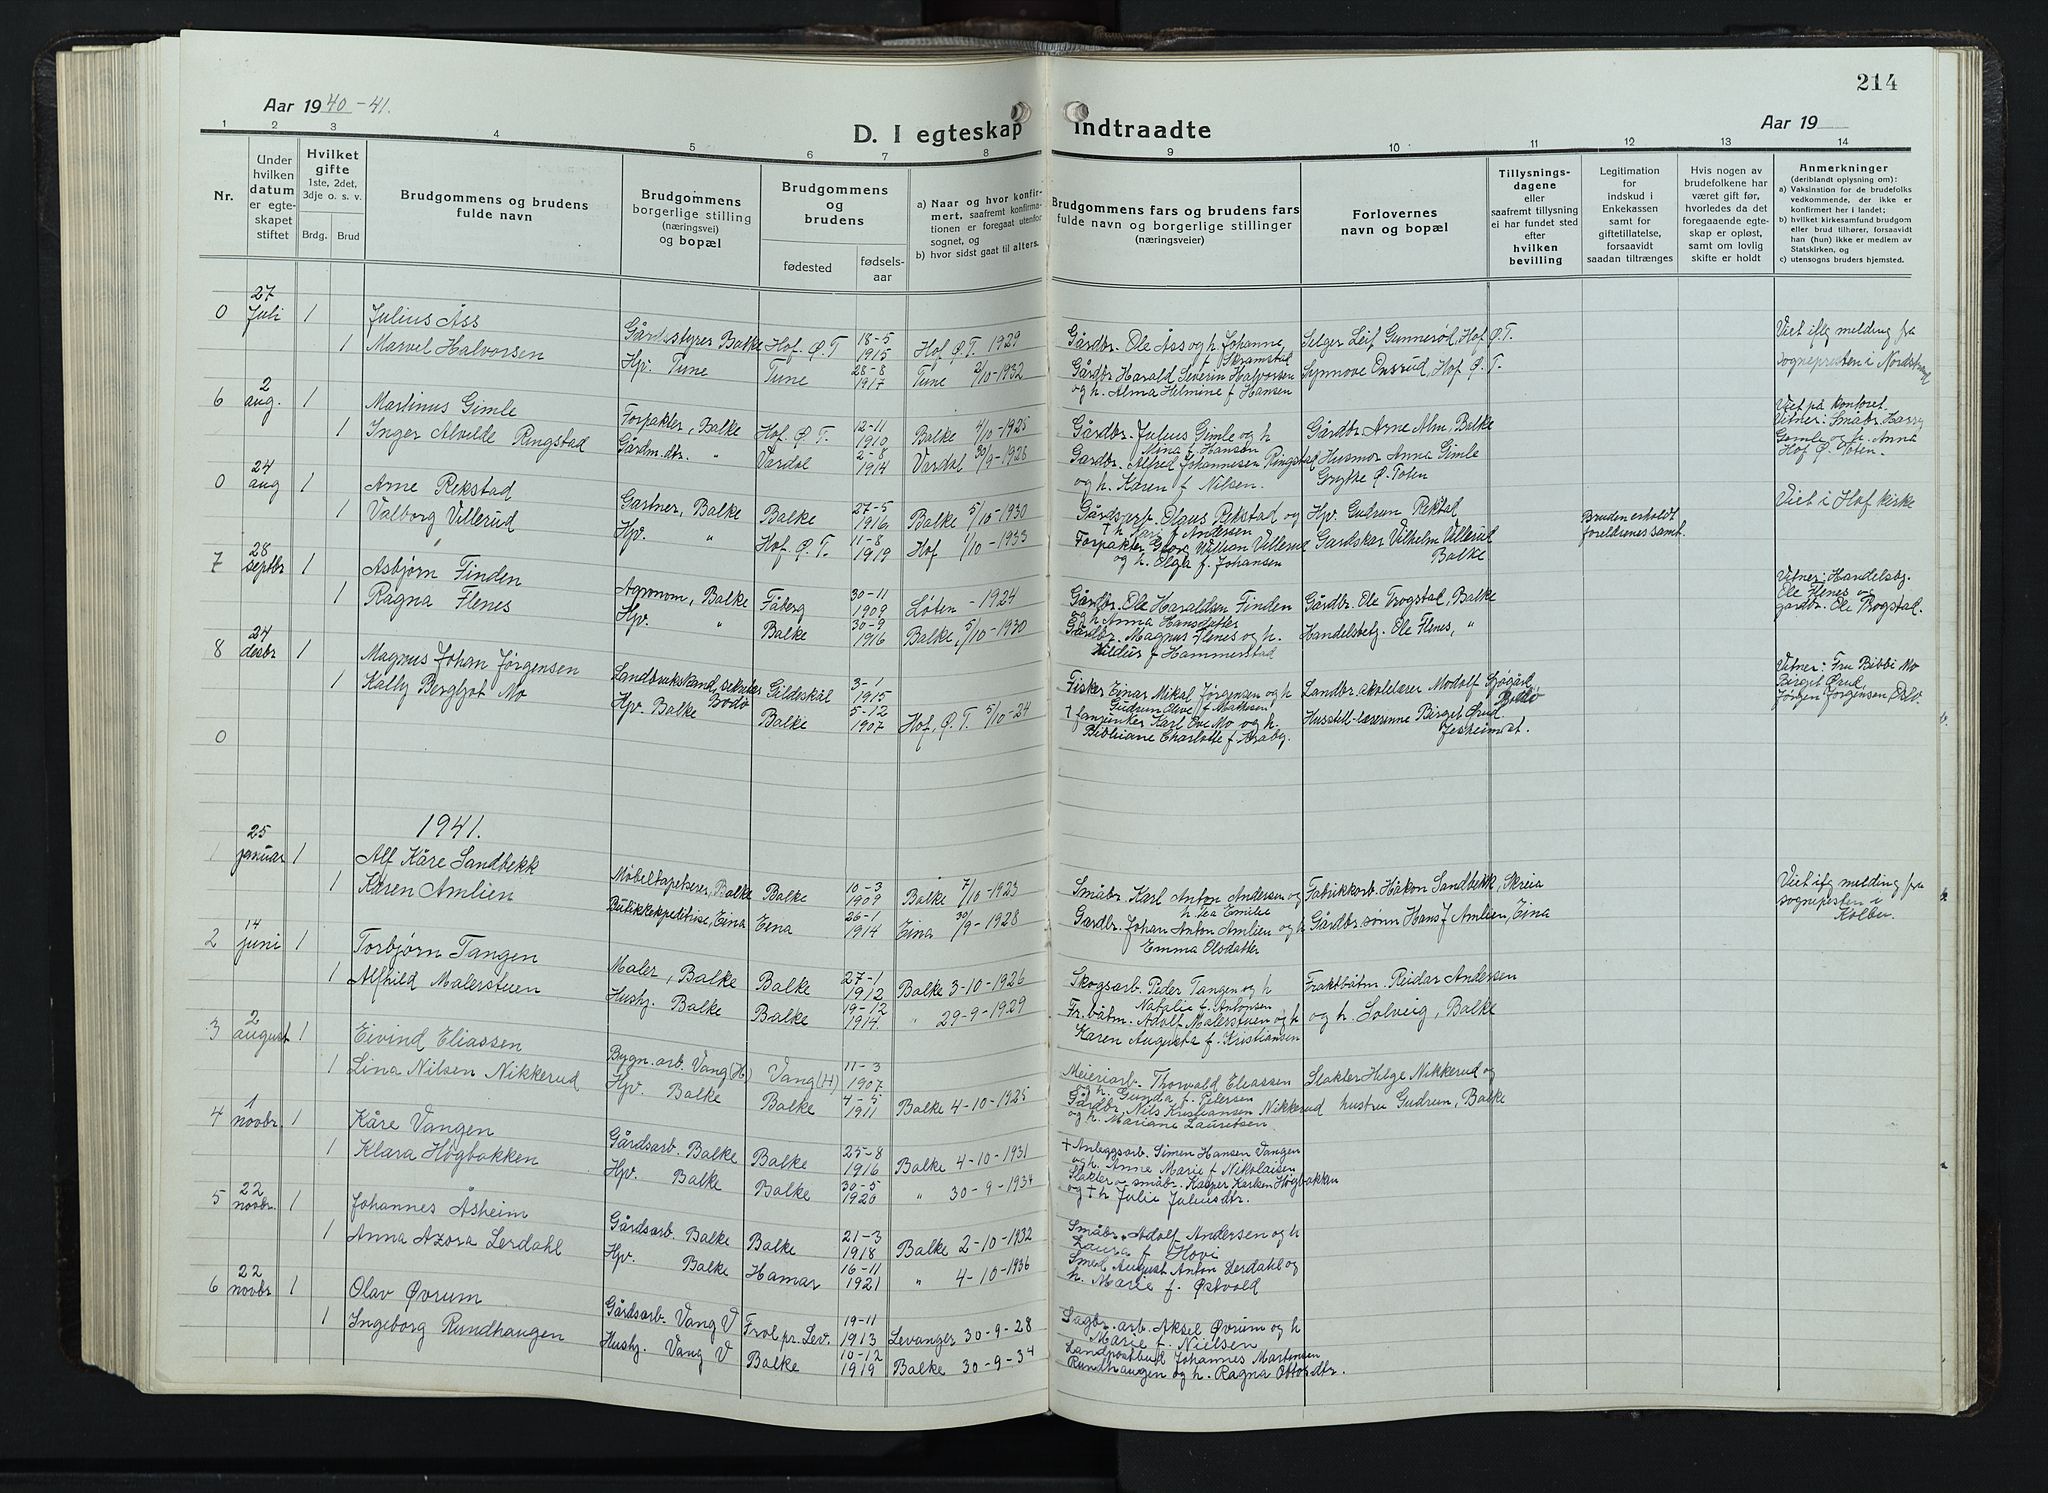 214
Aar 1940-41.
D. I egteskap indtraadte
Aar 19
1 2 3 4 5 6 7 8 9 10 11 12 13 14
Nr.
Under hvilken datum er egteskapet stiftet
Hvilket gifte
1ste, 2det, 3dje o. s. v.
Brdg. Brud
Brudgommens og brudens fulde navn
Brudgommens borgerlige stilling (næringsvei) og bopæl
Brudgommens og brudens
fødested
fødselsaar
a) Naar og hvor konfirmert, saafremt konfirmationen er foregaat utenfor sognet, og
b) hvor sidst gaat til alters.
Brudgommens fars og brudens fars fulde navn og borgerlige stillinger (næringsveier)
Forlovernes navn og bopæl
Tillysningsdagene eller saafremt tillysning ei har fundet sted efter hvilken bevilling
Legitimation for indskud i Enkekassen samt for giftetillatelse, forsaavidt saadan tiltrænges
Hvis nogen av brudefolkene har været gift før, hvorledes da det foregaaende egteskap er opløst, samt om lovlig skifte er holdt
Anmerkninger
(deriblandt oplysning om):
a) Vaksination for de brudefolks vedkommende, der ikke er konfirmert her i landet;
b) hvilket kirkesamfund brudgom eller brud tilhører, forsaavidt han (hun) ikke er medlem av Statskirken, og
c) utensogns bruders hjemsted.
0 27 Juli 1 Julius Åss Gårdsstyrer Balke Hof. Ø. T 18-5 1915 Hof Ø. T. 1929 Gårdbr. Ole Åss og h. Johanne f. Skramstad Selger Leif Gunnerød, Hof Ø. T. Viet iflg melding fra
1 Marvel Halvorsen Hpv. Tune Tune 28-8 1917 Tune 2/10-1932 Gårdbr Harald Severin Halvorsen og h. Alma Helmine f Hansen Synnove Onsrud, Hof Ø. T. sognepresten i Nordstrand
6 2 aug. 1 Martinus Gimle Forpakter, Balke Hof. Ø. T. 12-11 1910 Balke 4/10-1925 Gårdbr. Julius Gimle og h Mina f. Hansen Gårdbr Arne Alm, Balke Viet på kontoret. Vitner: Småbr Harry Gimle og h. Anna Hof Ø. Toten.
1 Inger Alvilde Ringstad Gårdm. dtr. " Vardal 2-8 1914 Vardal 30/9-1928 Gardbr. Alfred Johannesen Ringstad og h. Karen f Nilsen. Husmor Anna Gimle Grythe Ø. Toten
0 24 aug 1 Arne Rekstad Gartner, Balke Balke 27-5 1916 Balke 5/10-1930 Gårdsarb. Olaus Rekstad og + h f Andersen Hpv. Gudrun Rekstad Viet i Hof kirke
1 Valborg Villerud Hpv. " Hof Ø. T. 11-8 1919 Hof 1/10-1933 Forpakter Georg Willian Villerud og h. Olga f. Johansen Gardskar Vilhelm Villerud Balke Bruden erholdt foreldrenes samt.
7 28 septbr 1 Asbjørn Finden Agronom, Balke Fåberg 30-11 1909 Løten - 1924 Gårdbr. Ole Haraldsen Finden og h Anna Hansdatter Gårdbr. Ole Trogstad, Balke Vitner: Handelsbg. Ole Flenes og gårdbr. Ole Trogstad.
1 Ragna Flenes Hpv. " Balke 30-9 1916 Balke, 5/10-1930 Gårdbr. Magnus Flenes og h. Hildur f Hammerstad Handelsbetj. Ole Flenes, "
8 24 desbr 1 Magnus Johan Jørgensen Landbruksskand, sekretær Bodø Gildeskål 3-1 1915 Fisker Einar Mikal Jørgensen og h Gudrun Olive f Mathisen Landbr.skolelærer Modolf Sjøgård Bodø Vitner: Fru Bibbi Mo Birget Ørud Jørgen Jørgensen, Oslo.
1 Kally Bergljot Mo Hpv. Balke Balke 5-12 1907 Hof, Ø. T. 5/10-24 + fanjunker Karl Ove Mo og h. Bibbiane Charlotte f Husstell-lærerinne Birget Ørud. Jessheim st.
0
1941.
1 25 januar 1 Alf Kåre Sandbekk Møbeltapetserer, Balke Balke 10-3 1909 Balke 7/10-1923 Småbr. Karl Anton Andersen og h. Tea Emilie Fabrikkarb. Håkon Sandbekk, Skreia Viet iflg melding fra sognepresten i Kolbu.
1 Karen Amlien Butikkekspeditrise, Eina Eina 26-1 1914 Eina 30/9-1928 Gårdbr. Johan Anton Amlien og h Emma Olsdatter Gårdbr. sønn Hans J Amlien, Eina
2 14 juni 1 Torbjørn Tangen Maler, Balke Balke 27-1 1912 Balke 3-10-1926 Skogsarb. Peder Tangen og h Natalie f. Antonsen Fraktbåtm. Reidar Andersen
1 Alfhild Malerstuen Hushj. Balke Balke 19-12 1914. " 29-9-1929 Fr. båtm. Adolf Malerstuen og h Karen Augusta f. Kristiansen og h. Solveig, Balke
3 2 august 1 Eivind Eliassen Bygn. arb. Vang (H) Vang (H) 11-3 1907 Meieriarb. Thorvald Eliassen og h. Gunda f. Petersen Slakter Helge Nikkerud og
1 Lina Nilsen Nikkerud Hpv. Balke Balke 4-5 1911 Balke 4-10-1925 Gårdbr. Nils Kristiansen Nikkerud og h. Mariane Lauritsen hustru Gudrun, Balke
4 1 novbr. 1 Kåre Vangen Gårdsarb. Balke Balke 25-8 1916 Balke 4-10-1931 + Anleggsarb. Simen Hansen Vangen og h. Anne Marie f Nikolaisen
1 Klara Høgbakken Hpv. Balke Balke 30-5 1920 " 30-9-1934 Slakter og småbr. Kasper Karlsen Høgbakken og + h Julie Juliusdtr.
5 22 novbr. 1 Johannes Åsheim Gårdsarb. Balke Balke 21-3 1918 Balke 2-10-1932 Småbr. Adolf Andersen og h Laura f Hovi
1 Anna Azora Lerdahl Hpv. Balke Hamar 16-11 1921 " 4-10-1936 Smed August Anton Lerdahl og h. Marie f. Østvold
6 22 novbr 1 Olav Øvrum Gårdsarb. Vang V Frol pr. Lev. 19-11 1913 Levanger 30-9-28 Sagbr. arb. Aksel Øvrum og h Marie f. Nielsen
1 Ingeborg Rundhaugen Hushj. Vang V Balke 10-12 1919 Balke 30-9-34 Landpostbud Johannes Martinsen Rundhaugen og h. Ragna Ottosdtr.